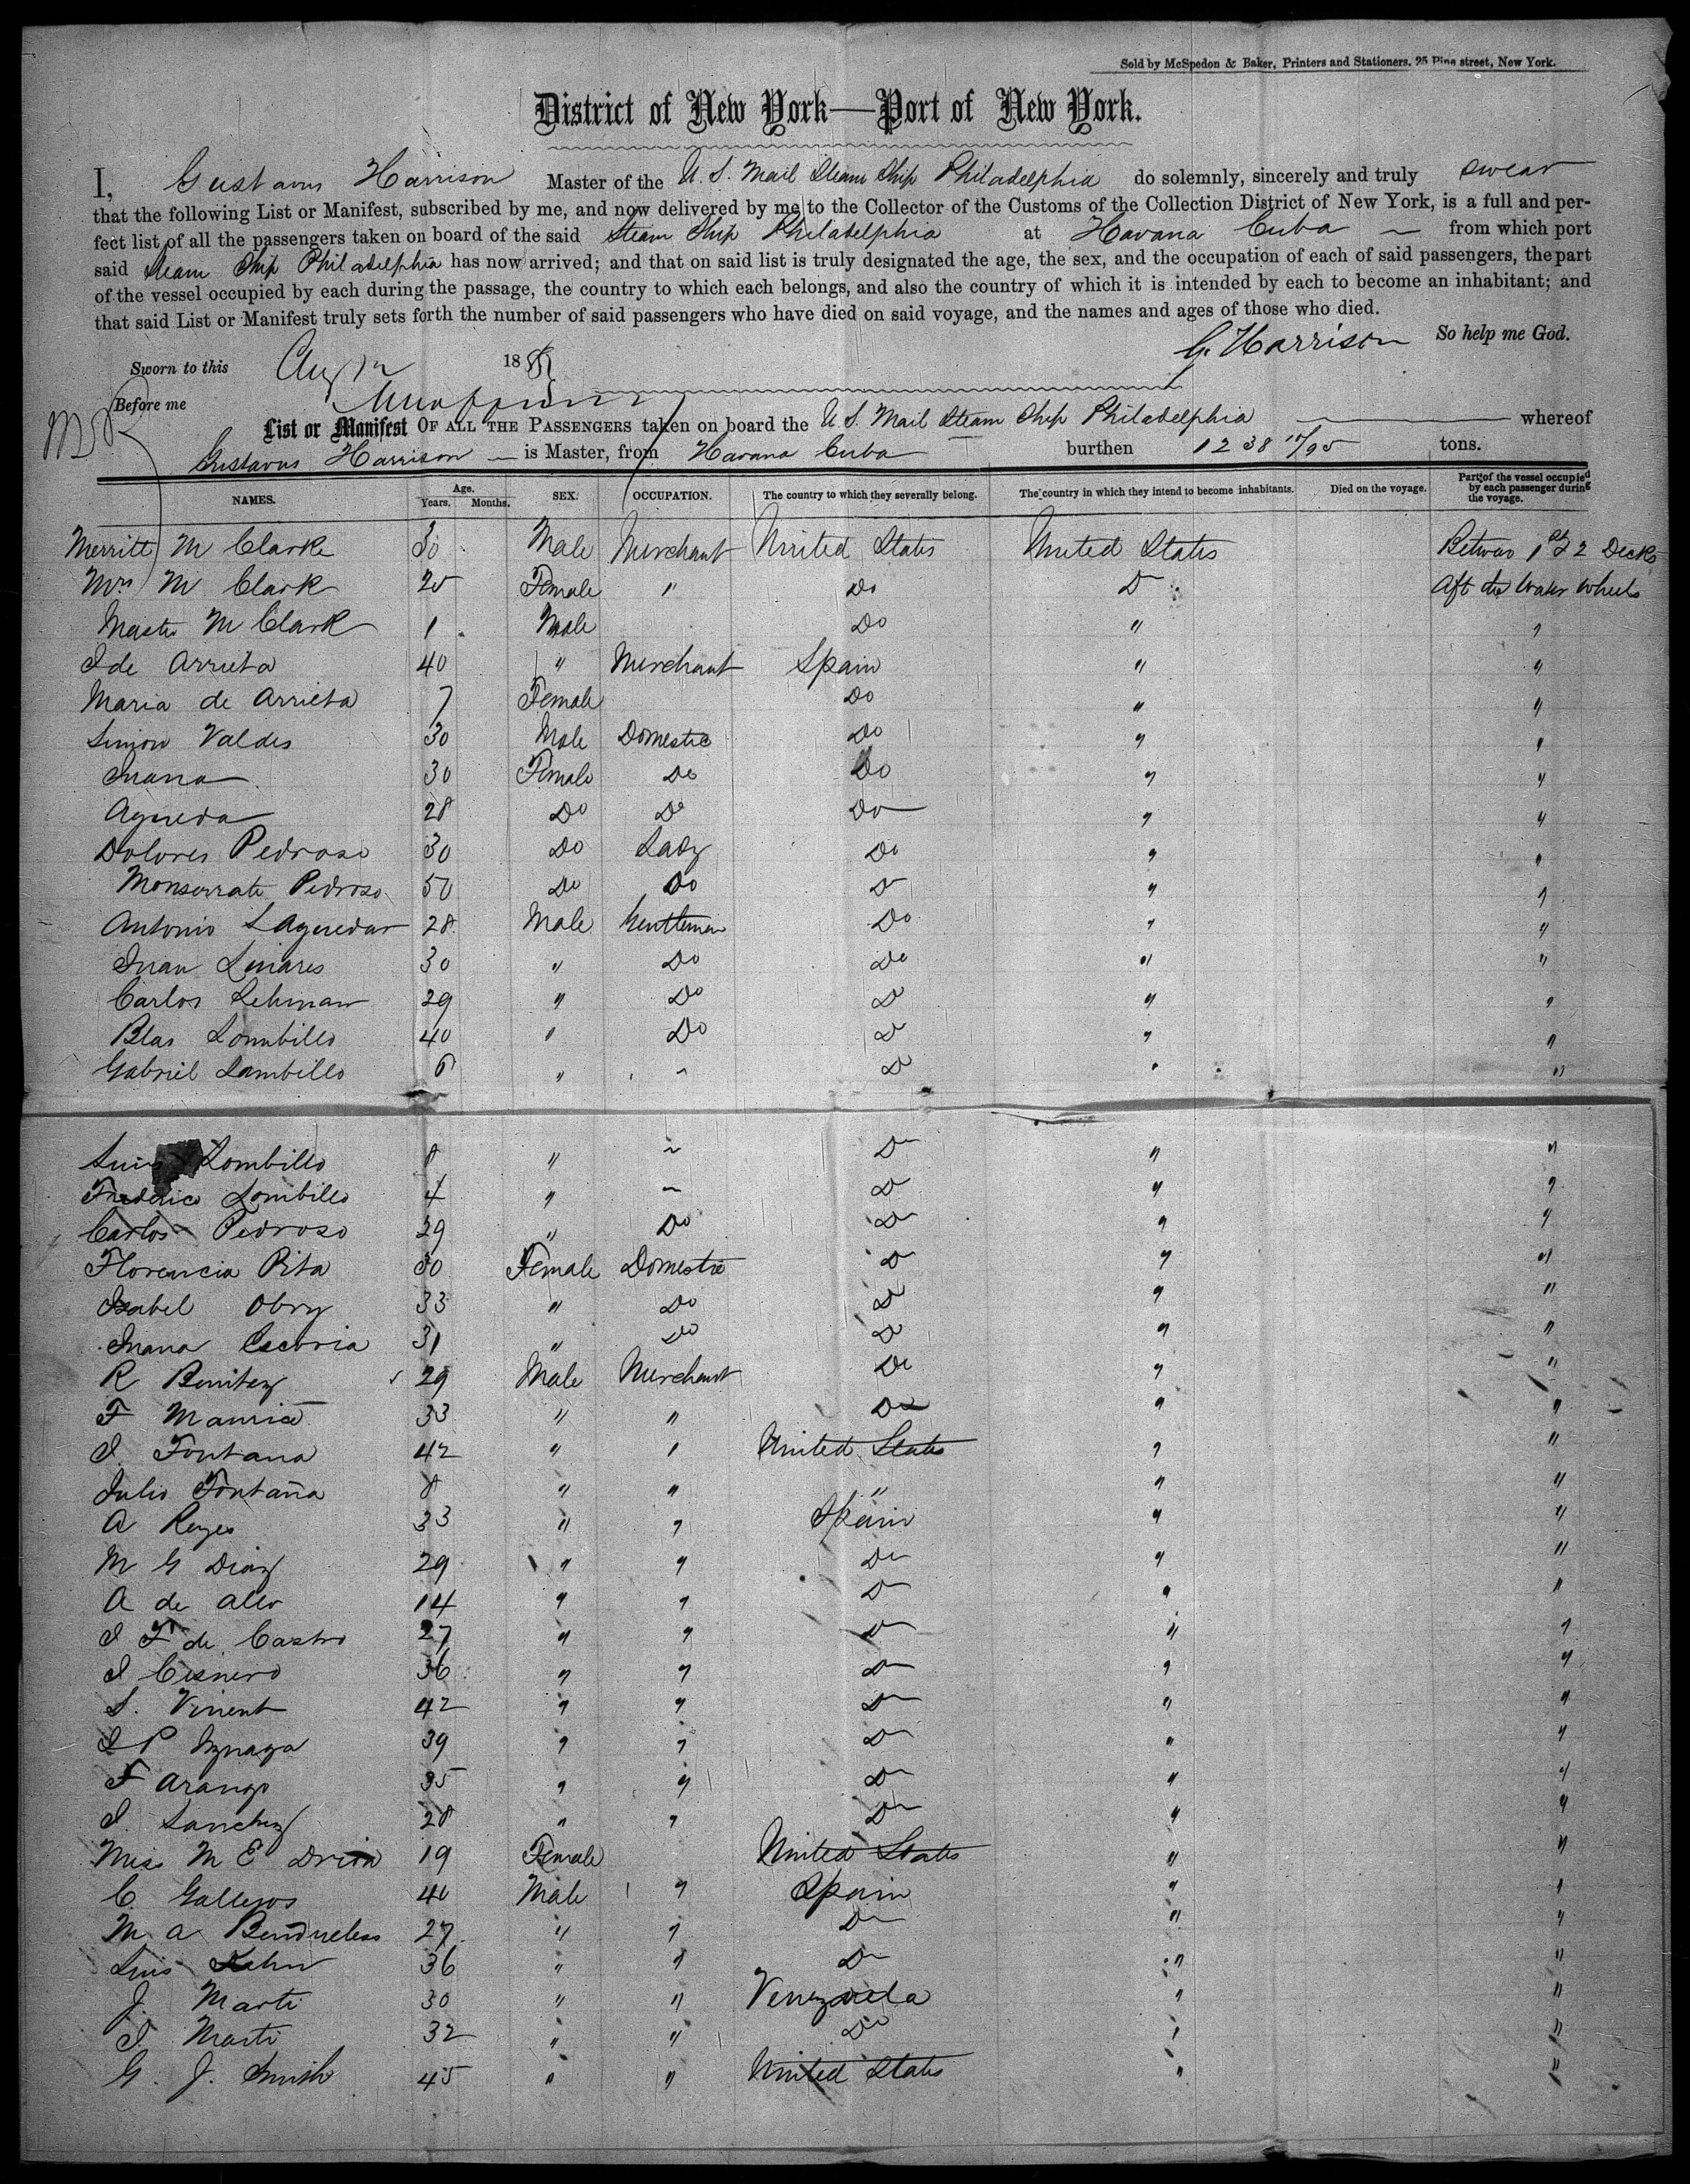 Sold by McSpedon & Baker, Printers and Stationers, 25 Pine street, New York.
District of New York—Port of New York.
I, Gustavus Harrison Master of the U. S. Mail Steam Ship Philadelphia do solemnly, sincerely and truly swear
that the following List or Manifest, subscribed by me, and now delivered by me to the Collector of the Customs of the Collection District of New York, is a full and per-
fect list of all the passengers taken on board of the said Steam Ship Philadelphia at Havana Cuba from which port
said Steam Ship Philadelphia has now arrived; and that on said list is truly designated the age, the sex, and the occupation of each of said passengers, the part
of the vessel occupied by each during the passage, the country to which each belongs, and also the country of which it is intended by each to become an inhabitant; and
that said List or Manifest truly sets forth the number of said passengers who have died on said voyage, and the names and ages of those who died.
G. Harrison So help me God.
Sworn to this Aug 12 18
Before me
List or Manifest OF ALL THE PASSENGERS taken on board the U. S. Mail Steam Ship Philadelphia whereof
Gustavus Harrison is Master, from Havana Cuba burthen 1238 17/95 tons.
NAMES. Age. Years. Months. SEX. OCCUPATION. The country to which they severally belong. The country in which they intend to become inhabitants. Died on the voyage. Part of the vessel occupied by each passenger during the voyage.
Merritt M Clark 30 Male Merchant United States United States Between 1st & 2 Decks
Mrs M Clark 25 Female " Do Do Aft the Water Wheels
Master M Clark 1 Male Do " "
I de Arrieta 40 " Merchant Spain " "
Maria de Arrieta 7 Female Do " "
Simon Valdes 30 Male Domestic Do " "
Juana 30 Female Do Do " "
Agueda 28 Do Do Do " "
Dolores Pedroso 30 Do Lady Do " "
Monserrate Pedroso 50 Do Do Do " "
Antonio 28 Male Gentleman Do " "
Juan Linares 30 " Do Do " "
Carlos Lehman 29 " Do Do " "
Blas Lombillo 40 " Do Do " "
Gabriel Lombillo 6 " " Do " "
Luis Lombillo 8 " " Do " "
Frederico Lombillo 4 " " Do " "
Carlos Pedroso 29 " Do Do " "
Florencia Pita 30 Female Domestic Do " "
Isabel Obry 33 " Do Do " "
Juana 31 " Do Do " "
R Benitez 29 Male Merchant Do " "
F 33 " " Do " "
I. Fontana 42 " " United States " "
Julio Fontana 8 " " " " "
A Reyes 33 " " Spain " "
M G Diaz 29 " " Do " "
A de Allo 14 " " Do " "
I F de Castro 27 " " Do " "
I Cisnero 36 " " Do " "
S. Vinent 42 " " Do " "
I P Iznaga 39 " " Do " "
F Arango 35 " " Do " "
I. Sanchez 28 " " Do " "
Miss M E 19 Female United States " "
C. Gallegos 40 Male " Spain " "
M A 27 " " Do " "
Luis 36 " " Do " "
J. Marti 30 " " Venezuela " "
I. Marti 32 " " Do " "
G. J. Smith 45 " " United States " "